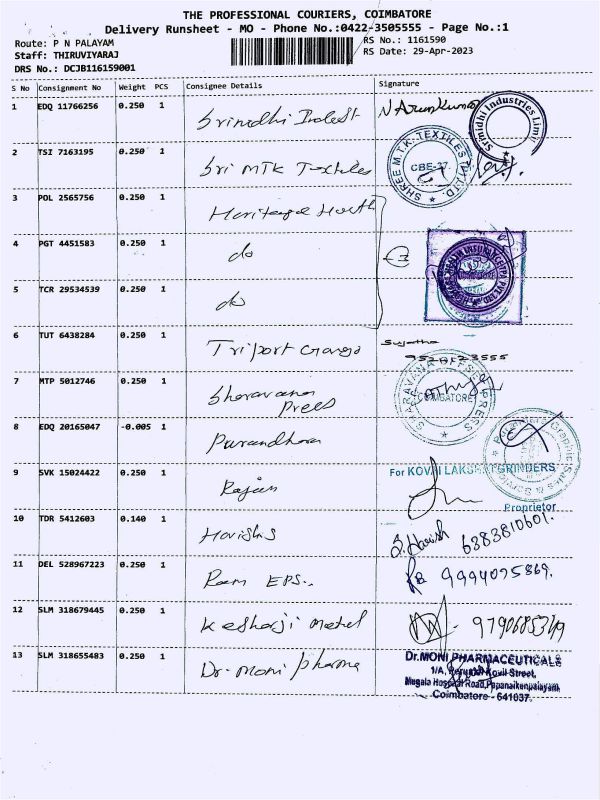 THE PROFESSIONAL COURIERS, COIMBATORE
Delivery Runsheet - MO - Phone No.:0422-3505555 - Page No.:1
Route: P N PALAYAM
RS No.: 1161590
Staff: THIRUVIYARAJ
RS Date: 29-Apr-2023
DRS No.: DCJB116159001
S No Consignment No Weight PCS Consignee Details Signature
1 EDQ 11766256 0.250 1 Srinidhi N Arunkumar
Srinidhi Industries Limit
2 TSI 7163195 0.250 1 Sri MTK Textiles
SHREE M.T.K. TEXTILES (P) LTD.
CBE-37
3 POL 2565756 0.250 1 Heritage Health
4 PGT 4451583 0.250 1 do
5 TCR 29534539 0.250 1 do
6 TUT 6438284 0.250 1 Triport Sujatha
7 MTP 5012746 0.250 1 Sharavana Press
SARAVANA OFFSET PRESS
COIMBATORE
8 EDQ 20165047 -0.005 1 Purandhara
Graphic Sales & Service
9 SVK 15024422 0.250 1
For KOVAI LAKSHMI GRINDERS
Proprietor
10 TDR 5412603 0.140 1 S. Harish 6383810601.
11 DEL 528967223 0.250 1 Ram EPS.. 9994075869.
12 SLM 318679445 0.250 1 Kesharji metal - 9790685349
13 SLM 318655483 0.250 1 Dr. Moni Pharma
Dr.MONI PHARMACEUTICALS
1/A, Perumal Kovil Street,
Mugala Hospital Road, Papanaikenpalayam
Coimbatore - 641037.